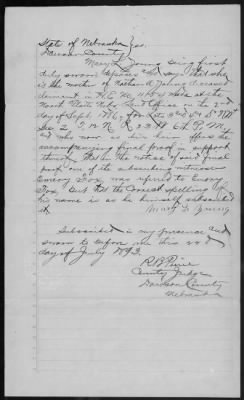 State of Nebraska } ss.
Dawson County
Mary L. Young being first
duly sworn deposes and says that she
is the mother of Nathan A Young deceased
who made H.E. No made at the
North Platte Neb. Land Office on the 2nd
day of Sept. for Lots 3 & 4 & S½ NW
Sec 2 T. N R 23 W 6th P. M.
and who now as his heir offers the
accompanying final proof in support
thereof. That in the notice of said final
proof one of the subscribing witnesses
Emery Fox was referred to Emory
Fox but that the correct spelling of
his name is as he himself subscribed
it.
Mary L Young
Subscribed in my presence and
sworn to before me this 22d
day of July 1893.
R B Pierce
County Judge
Dawson County
Nebraska